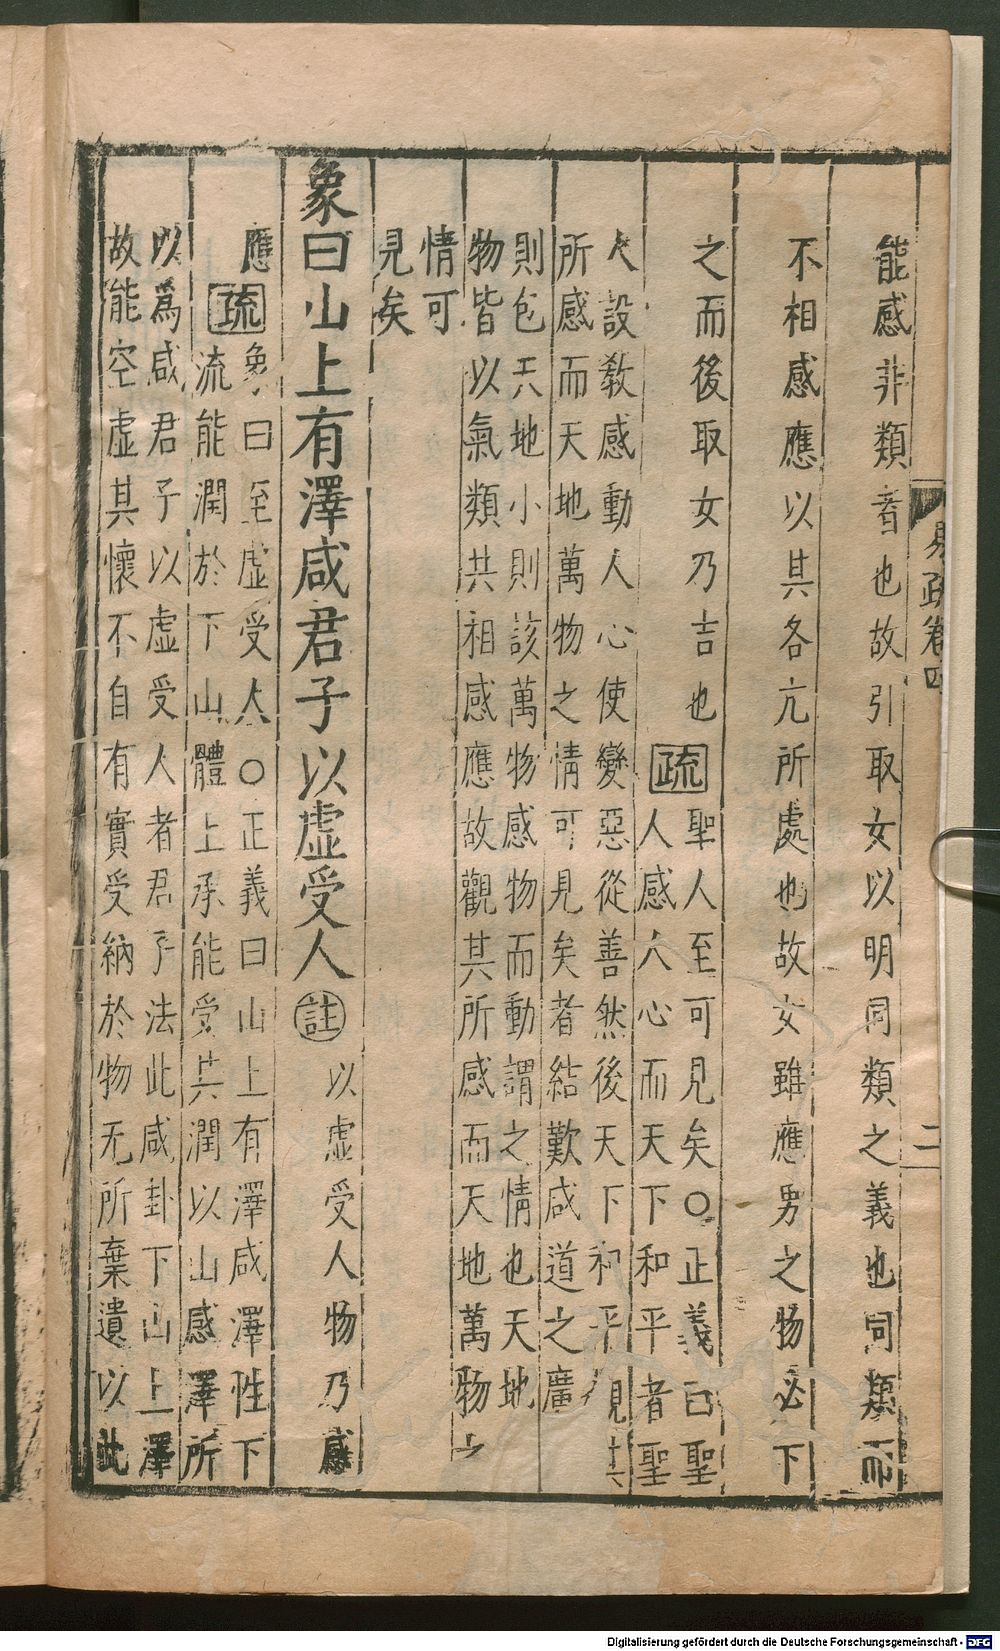 易疏卷四
二
能感非類者也故引取女以明同類之義也同類而
不相感應以其各亢所處也故女雖應男之物必下
之而後取女乃吉也疏聖人至可見矣○正義曰聖
人感人心而天下和平者聖
人設教感動人心使變惡從善然後天下和平觀其
所感而天地萬物之情可見矣者結歎咸道之廣
則包天地小則該萬物感物而動謂之情也天地
物皆以氣類共相感應故觀其所感而天地萬物之
情可
見矣
象曰山上有澤咸君子以虛受人註以虛受人物乃感
應疏象曰至虛受人○正義曰山上有澤咸澤性下
流能潤於下山體上承能受其潤以山感澤所
以為咸君子以虛受人者君子法此咸卦下山上澤
故能空虛其懷不自有實受納於物无所棄遺以此
Digitalisierung gefördert durch die Deutsche Forschungsgemeinschaft - DFG